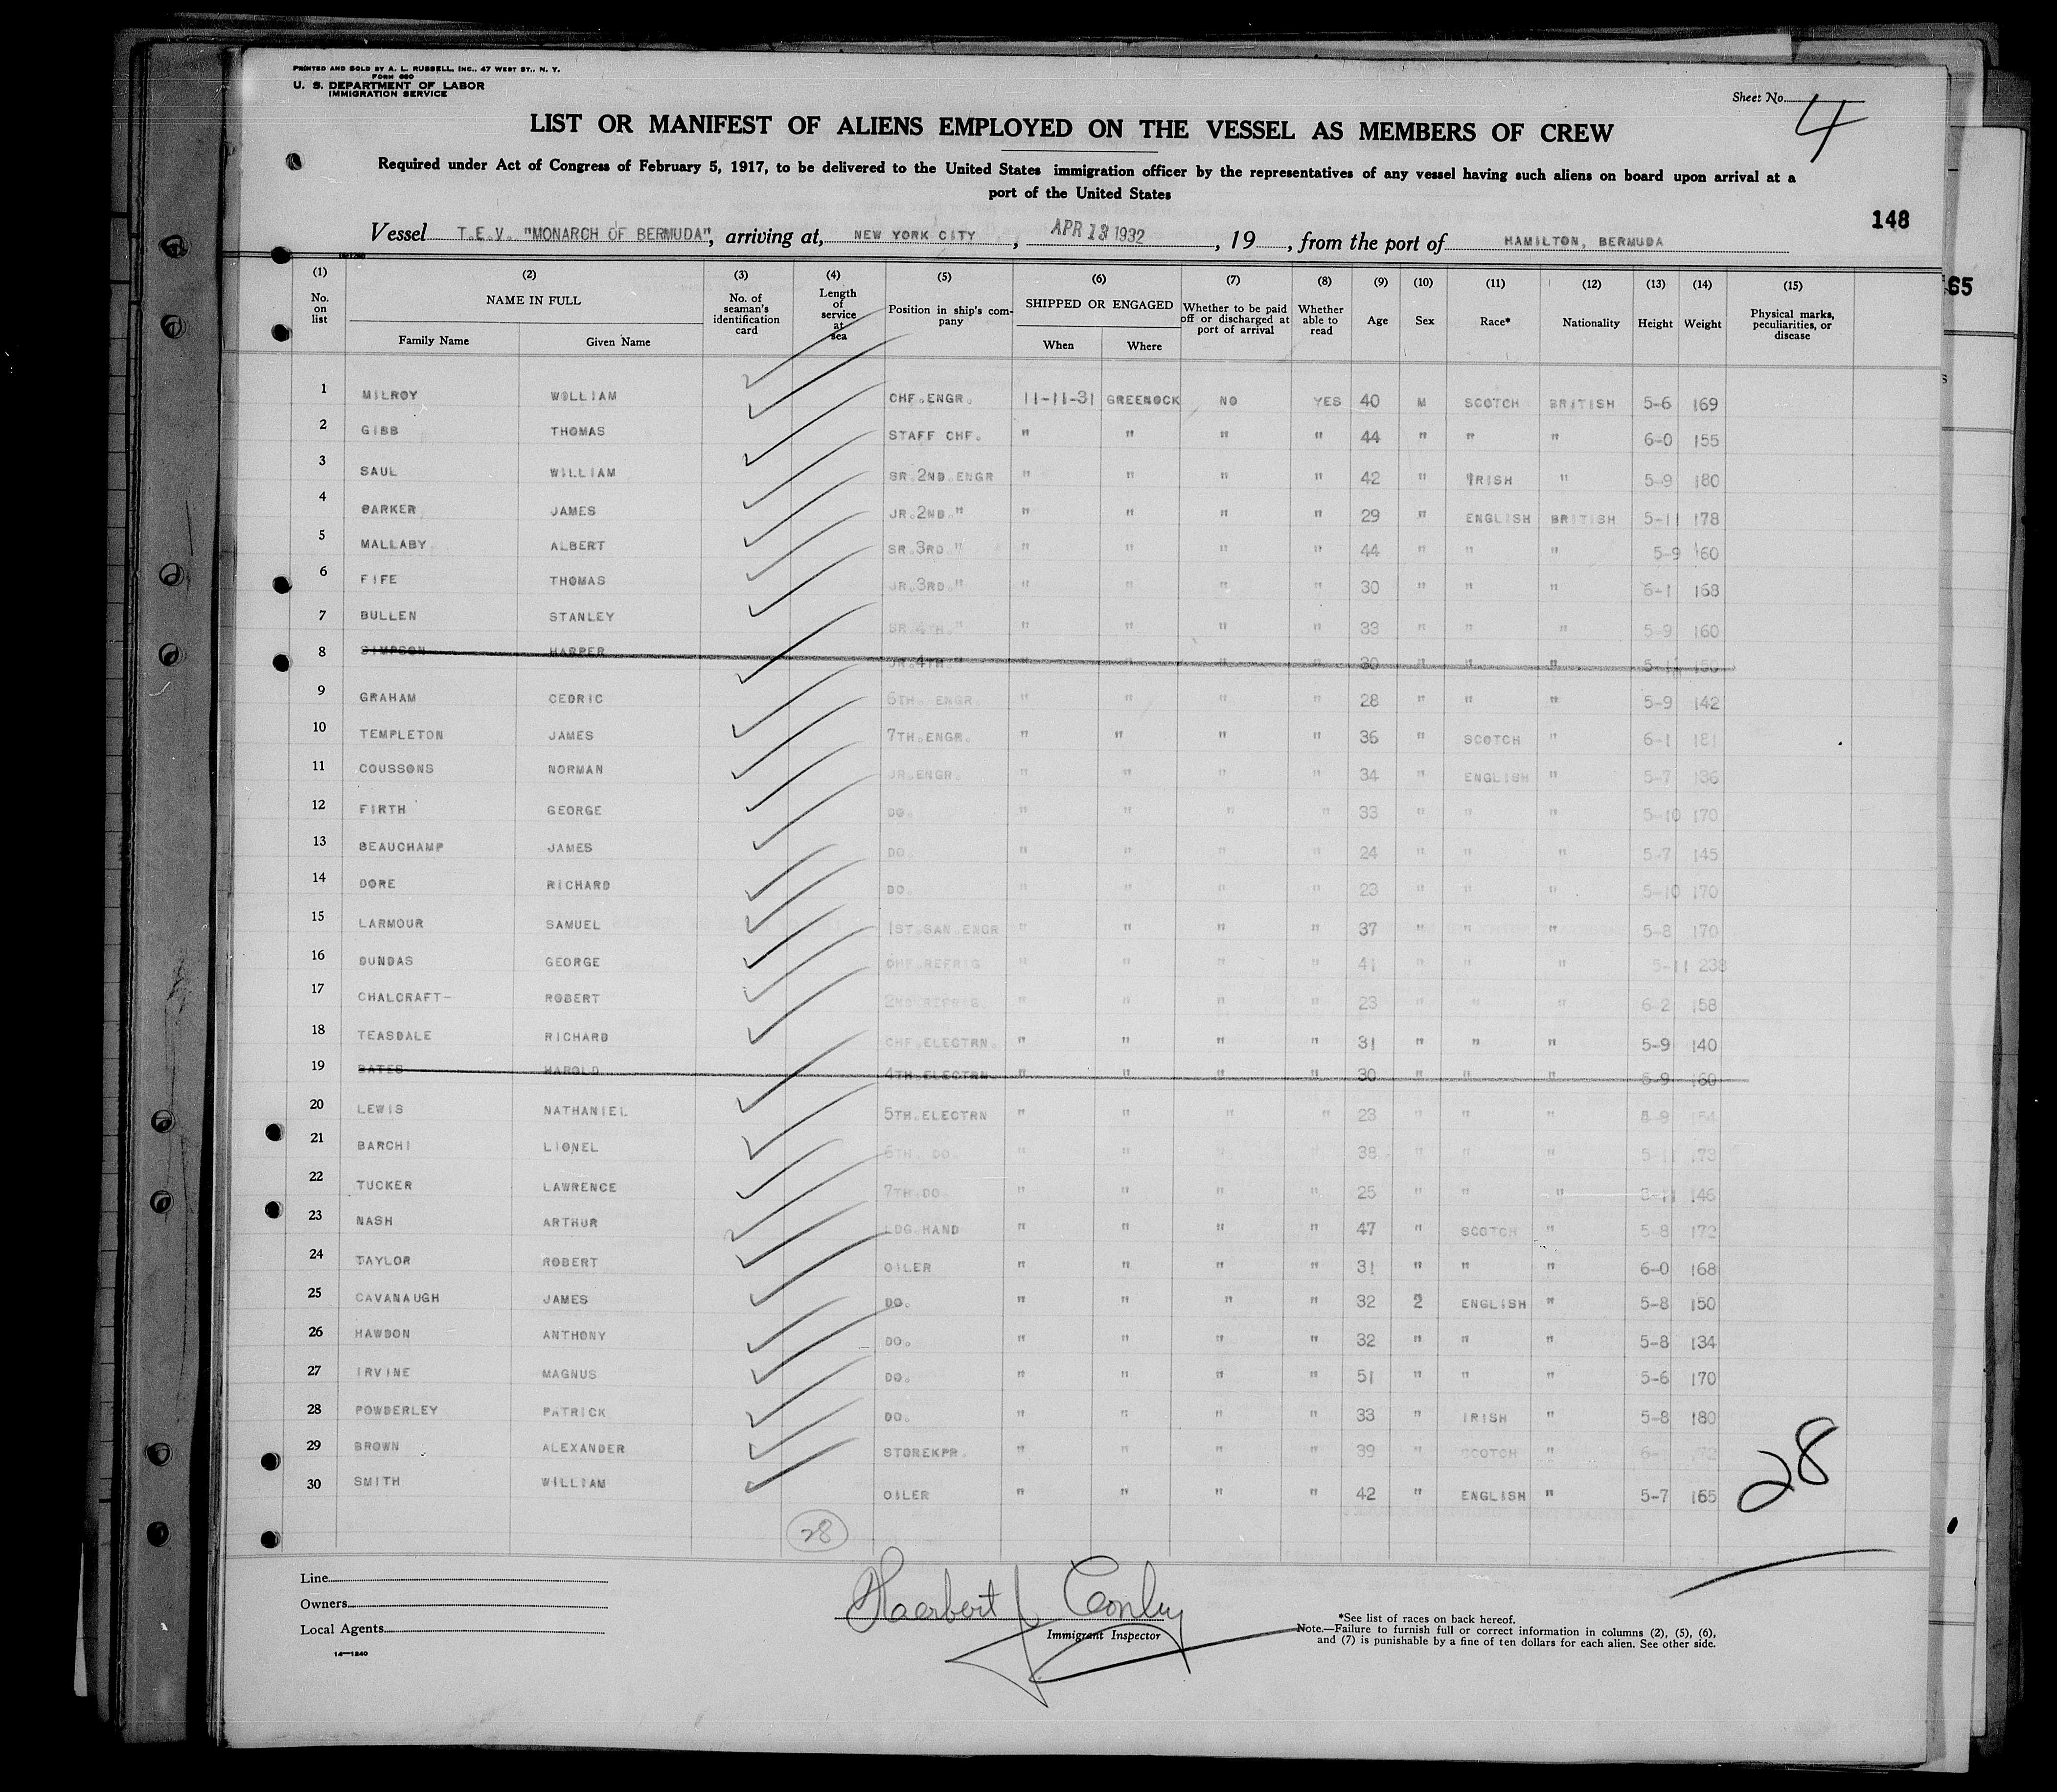 PRINTED AND SOLD BY A. L. RUSSELL, INC., 47 WEST ST., N. Y.
FORM 680
U. S. DEPARTMENT OF LABOR
IMMIGRATION SERVICE
Sheet No. 4
LIST OR MANIFEST OF ALIENS EMPLOYED ON THE VESSEL AS MEMBERS OF CREW
Required under Act of Congress of February 5, 1917, to be delivered to the United States immigration officer by the representatives of any vessel having such aliens on board upon arrival at a
port of the United States
148
Vessel T.E.V. "MONARCH OF BERMUDA", arriving at, NEW YORK CITY, APR 13 1932, 19, from the port of HAMILTON, BERMUDA
65
(1) (2) (3) (4) (5) (6) (7) (8) (9) (10) (11) (12) (13) (14) (15)
No. on list NAME IN FULL Family Name Given Name No. of seaman's identification card Length of service at sea Position in ship's company SHIPPED OR ENGAGED When Where Whether to be paid off or discharged at port of arrival Whether able to read Age Sex Race* Nationality Height Weight Physical marks, peculiarities, or disease
1 MILROY WOLLIAM CHF.ENGR. 11-11-31 GREENOCK NO YES 40 M SCOTCH BRITISH 5-6 169
2 GIBB THOMAS STAFF CHF. " " " " 44 " " " 6-0 155
3 SAUL WILLIAM SR.2ND.ENGR " " " " 42 " IRISH " 5-9 180
4 BARKER JAMES JR.2ND." " " " " 29 " ENGLISH BRITISH 5-11 178
5 MALLABY ALBERT SR.3RD." " " " " 44 " " " 5-9 160
6 FIFE THOMAS JR.3RD." " " " " 30 " " " 6-1 168
7 BULLEN STANLEY SR.4TH." " " " " 33 " " " 5-9 160
8 SIMPSON HARPER JR.4TH." " " " " 30 " " " 5-11 150
9 GRAHAM CEDRIC 6TH. ENGR " " " " 28 " " " 5-9 142
10 TEMPLETON JAMES 7TH.ENGR. " " " " 36 " SCOTCH " 6-1 181
11 COUSSONS NORMAN JR.ENGR. " " " " 34 " ENGLISH " 5-7 136
12 FIRTH GEORGE DO. " " " " 33 " " " 5-10 170
13 BEAUCHAMP JAMES DO. " " " " 24 " " " 5-7 145
14 DORE RICHARD DO. " " " " 23 " " " 5-10 170
15 LARMOUR SAMUEL 1ST.SAN.ENGR " " " " 37 " " " 5-8 170
16 DUNDAS GEORGE CHF.REFRIG " " " " 41 " " " 5-11 238
17 CHALCRAFT- ROBERT 2ND.REFRIG. " " " " 23 " " " 6-2 158
18 TEASDALE RICHARD CHF.ELECTRN. " " " " 31 " " " 5-9 140
19 BATES HAROLD 4TH.ELECTRN " " " " 30 " " " 5-9 160
20 LEWIS NATHANIEL 5TH.ELECTRN " " " " 23 " " "
21 BARCHI LIONEL 6TH. DO. " " " " 38 " " " 5-11 173
22 TUCKER LAWRENCE 7TH.DO. " " " " 25 " " " 146
23 NASH ARTHUR LDG.HAND " " " " 47 " SCOTCH " 5-8 172
24 TAYLOR ROBERT OILER " " " " 31 " " " 6-0 168
25 CAVANAUGH JAMES DO. " " " " 32 2 ENGLISH " 5-8 150
26 HAWDON ANTHONY DO. " " " " 32 " " " 5-8 134
27 IRVINE MAGNUS DO. " " " " 51 " " " 5-6 170
28 POWDERLEY PATRICK DO. " " " " 33 " IRISH " 5-8 180
29 BROWN ALEXANDER STOREKPR. " " " " 39 " SCOTCH "
30 SMITH WILLIAM OILER " " " " 42 " ENGLISH " 5-7 165
28
28
Line
Owners
Local Agents
14—1240
Haerbert J Conley
Immigrant Inspector
*See list of races on back hereof.
Note.—Failure to furnish full or correct information in columns (2), (5), (6),
and (7) is punishable by a fine of ten dollars for each alien. See other side.